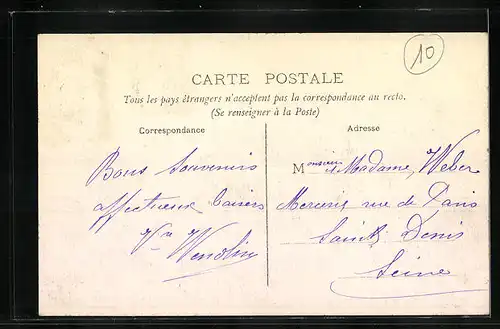 10
CARTE POSTALE
Tous les pays étrangers n'acceptent pas la correspondance au recto.
(Se renseigner à la Poste)
Correspondance
Adresse
Bons Souvenirs
affectueux baisers
Monsieur et Madame Weber
Mercerie rue de Paris
Saint Denis
Seine